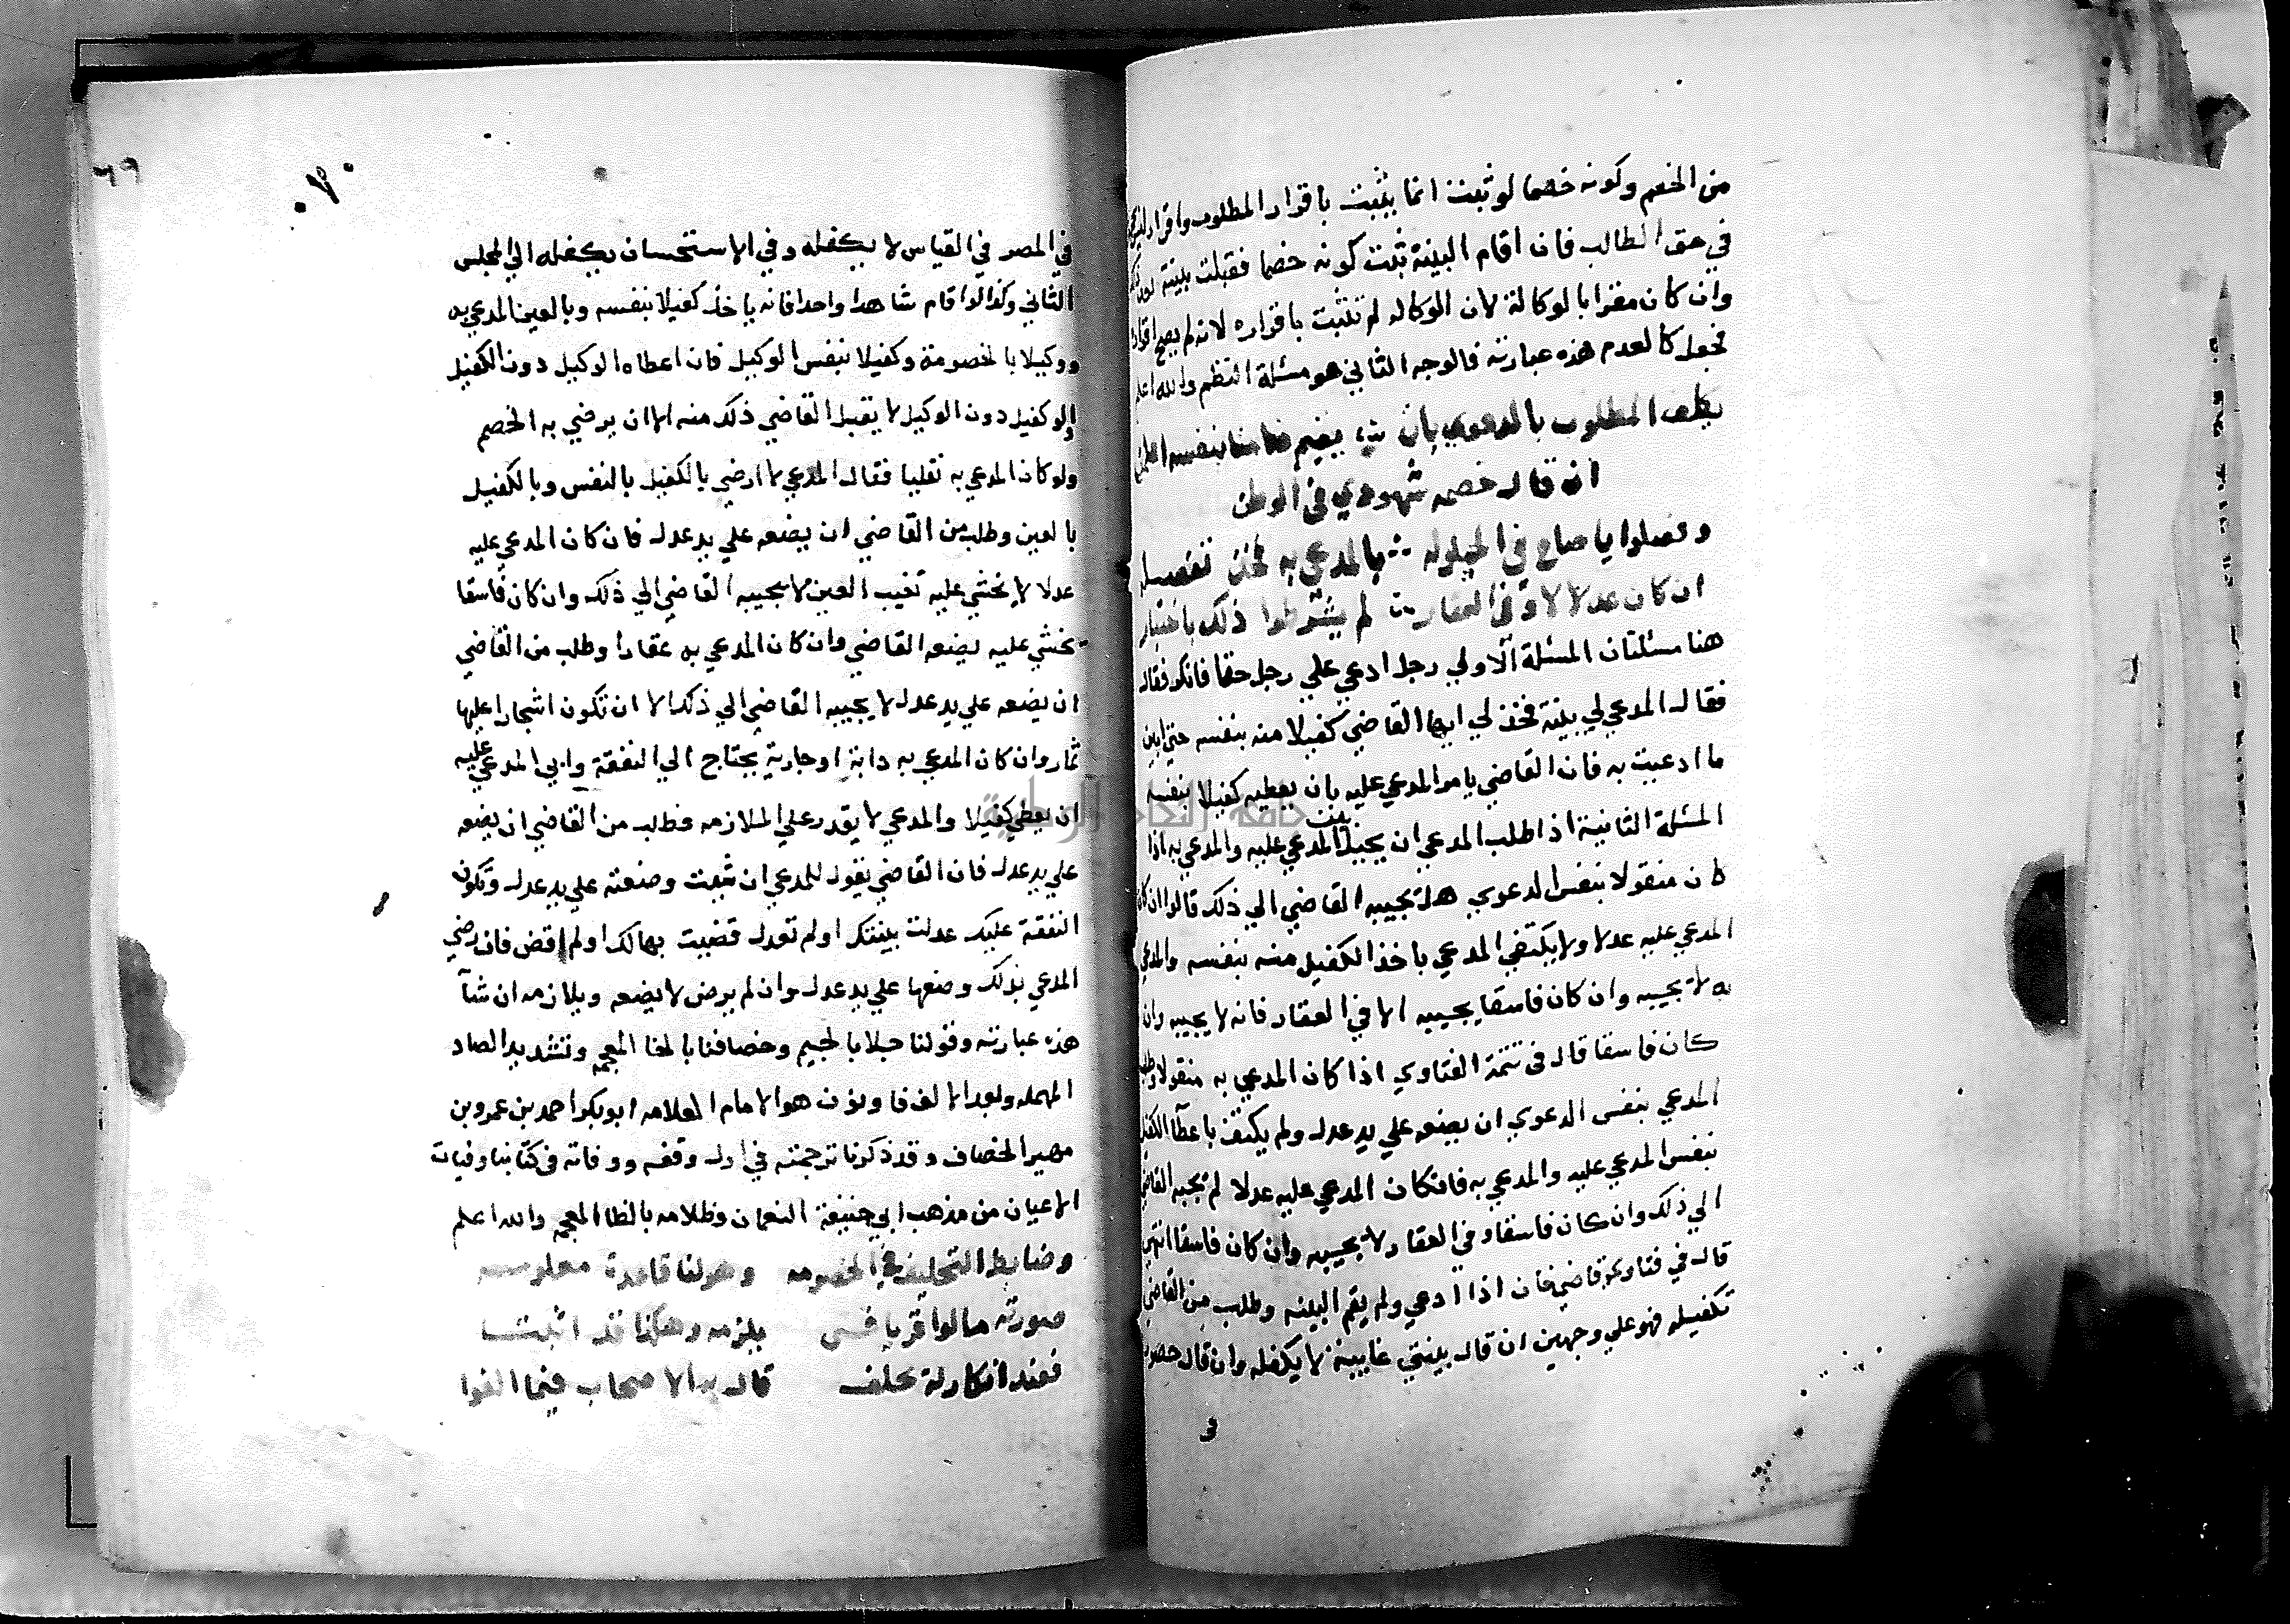 من الخصم وكونه خصما لو ثبت انما يثبت باقرار المطلوب واقراره ليس بحجة
في حق الطالب فان اقام البينة ثبت كونه خصما فقبلت بينته بعد ذلك
وان كان مقرا بالوكالة لان الوكاله لم تثبت باقراره لانه لم يصح اقراره
فجعل كالعدم هذه عبارته فالوجه الثاني هو مسئلة النظم والله اعلم
يكلف المطلوب بالدعوي بان يقيم ضامنا بنفسه
ان قال خصمه شهودي في الوطن
وفصلوا يا صاح في الحيلوله بالمدعي به فخذ تفصيله
ان كان عدلا لا وفي العقار لم يشترطوا ذلك باختيار
هنا مسئلتان المسئلة الاولي رجل ادعي علي رجل حقا فانكر فقال
فقال المدعي لي بينة فخذ لي ايها القاضي كفيلا منه بنفسه حتي ابين
ما ادعيت به فان القاضي يامر المدعي عليه بان يعطيه كفيلا بنفسه
المسئلة الثانية اذا طلب المدعي ان يحيل بين المدعي عليه والمدعي به اذا
كان منقولا بنفس الدعوي هل يجيبه القاضي الي ذلك قالوا ان كان
المدعي عليه عدلا ولا يكتفي المدعي باخذ الكفيل منه بنفسه والمدعي
به لا يجيبه وان كان فاسقا يجيبه الا في العقار فانه لا يجيبه وان
كان فاسقا قال في تتمة الفتاوي اذا كان المدعي به منقولا وطلب
المدعي بنفس الدعوي ان يضعه علي يد عدل ولم يكتف باعطآ الكفيل
بنفس المدعي عليه والمدعي به فان كان المدعي عليه عدلا لم يجبه القاضي
الي ذلك وان كان فاسقا وفي العقار لا يجيبه وان كان فاسقا انتهي
قال في فتاوي قاضي خان اذا ادعي ولم يقم البينه وطلب من القاضي
تكفيله فهو علي وجهين ان قال بينتي غايبة لا يكفله وان قال حضور
في
في المصر في القياس لا يكفله وفي الاستحسان يكفله الي المجلس
الثاني وكذا لو اقام شاهدا واحدا فانه ياخذ كفيلا بنفسه وبالعين المدعي به
ووكيلا بالخصومة وكفيلا بنفس الوكيل فان اعطاه الوكيل دون الكفيل
او الكفيل دون الوكيل لا يقبل القاضي ذلك منه الا ان يرضي به الخصم
ولو كان المدعي به نقليا فقال المدعي لا ارضي بالكفيل بالنفس وبالكفيل
بالعين وطلب من القاضي ان يضعه علي يد عدل فان كان المدعي عليه
عدلا لا يخشي عليه تغيب العين لا يجيبه القاضي الي ذلك وان كان فاسقا
يخشي عليه يضعه القاضي وان كان المدعي به عقارا وطلب من القاضي
ان يضعه علي يد عدل لا يجيبه القاضي الي ذلك الا ان تكون اشجارا عليها
ثمار وان كان المدعي به دابة او جارية يحتاج الي النفقة وابي المدعي عليه
ان يعطي كفيلا والمدعي لا يقدر علي الملازمه فطلب من القاضي ان يضعه
علي يد عدل فان القاضي يقول للمدعي ان شيت وضعته علي يد عدل وتكون
النفقة عليك عدلت بينتك او لم تعدل قضيت بها لك او لم اقض فان رضي
المدعي بذلك وضعها علي يد عدل وان لم يرض لا يضعه ويلازمه ان شآ
هذه عبارته وقولنا حيلا بالجيم وخصافنا بالخا المعجمه وتشديد الصاد
المهمله وبعد الالف فا ونون هو الامام العلامه ابو بكر احمد بن عمرو بن
مهير الخصاف وقد ذكرنا ترجمته في اول وقفه ووفاته في كتابنا وفيات
الاعيان من مذهب ابي حنيفة النعمان وظلامه بالظا المعجمه والله اعلم
وضابط التحليف في الخصومه وهو لنا قاعدة معلومه
صورته ما لو اقر بلزمه وهكذا قد
فعند انكار له يحلف قال به الاصحاب فيما الفوا
٦٩
جامعة النجاح الوطنية